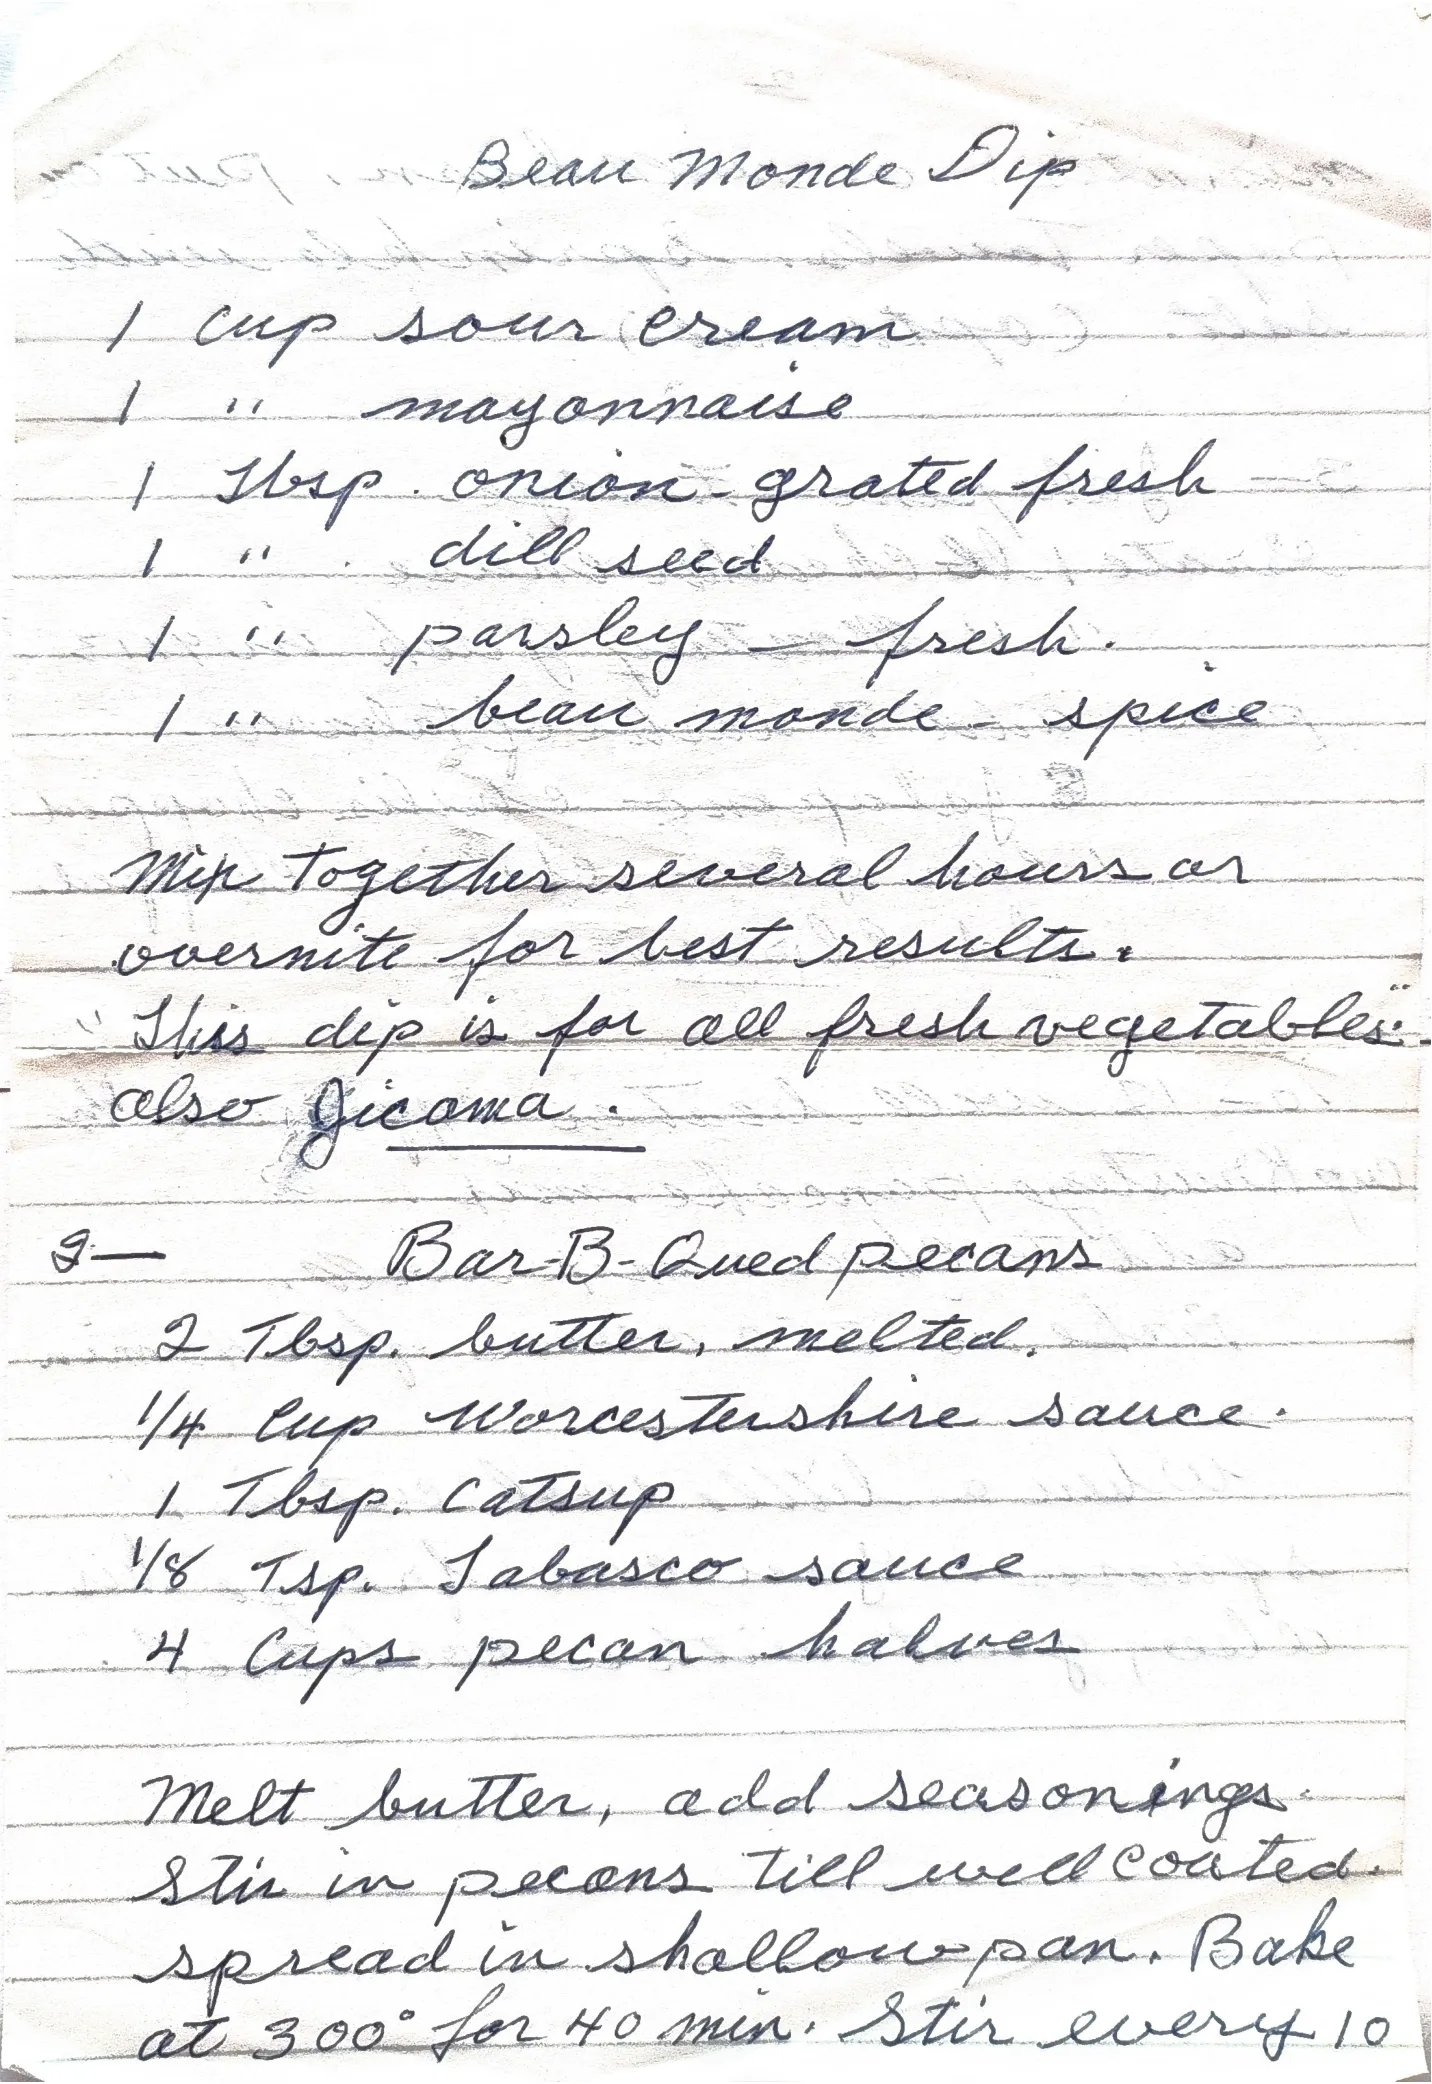 Beau Monde Dip
1 cup sour cream
1 " mayonnaise
1 Tbsp. onion - grated fresh
1 " dill seed
1 " parsley - fresh.
1 " beau monde - spice
Mix together several hours or
overnite for best results.
"This dip is for all fresh vegetables."
also Jicama.
2— Bar-B-Qued pecans
2 Tbsp. butter, melted.
1/4 Cup Worcestershire sauce.
1 Tbsp. Catsup
1/8 Tsp. Tabasco sauce
4 Cups pecan halves
Melt butter, add seasonings.
Stir in pecans till well coated.
spread in shallow pan. Bake
at 300° for 40 min. Stir every 10